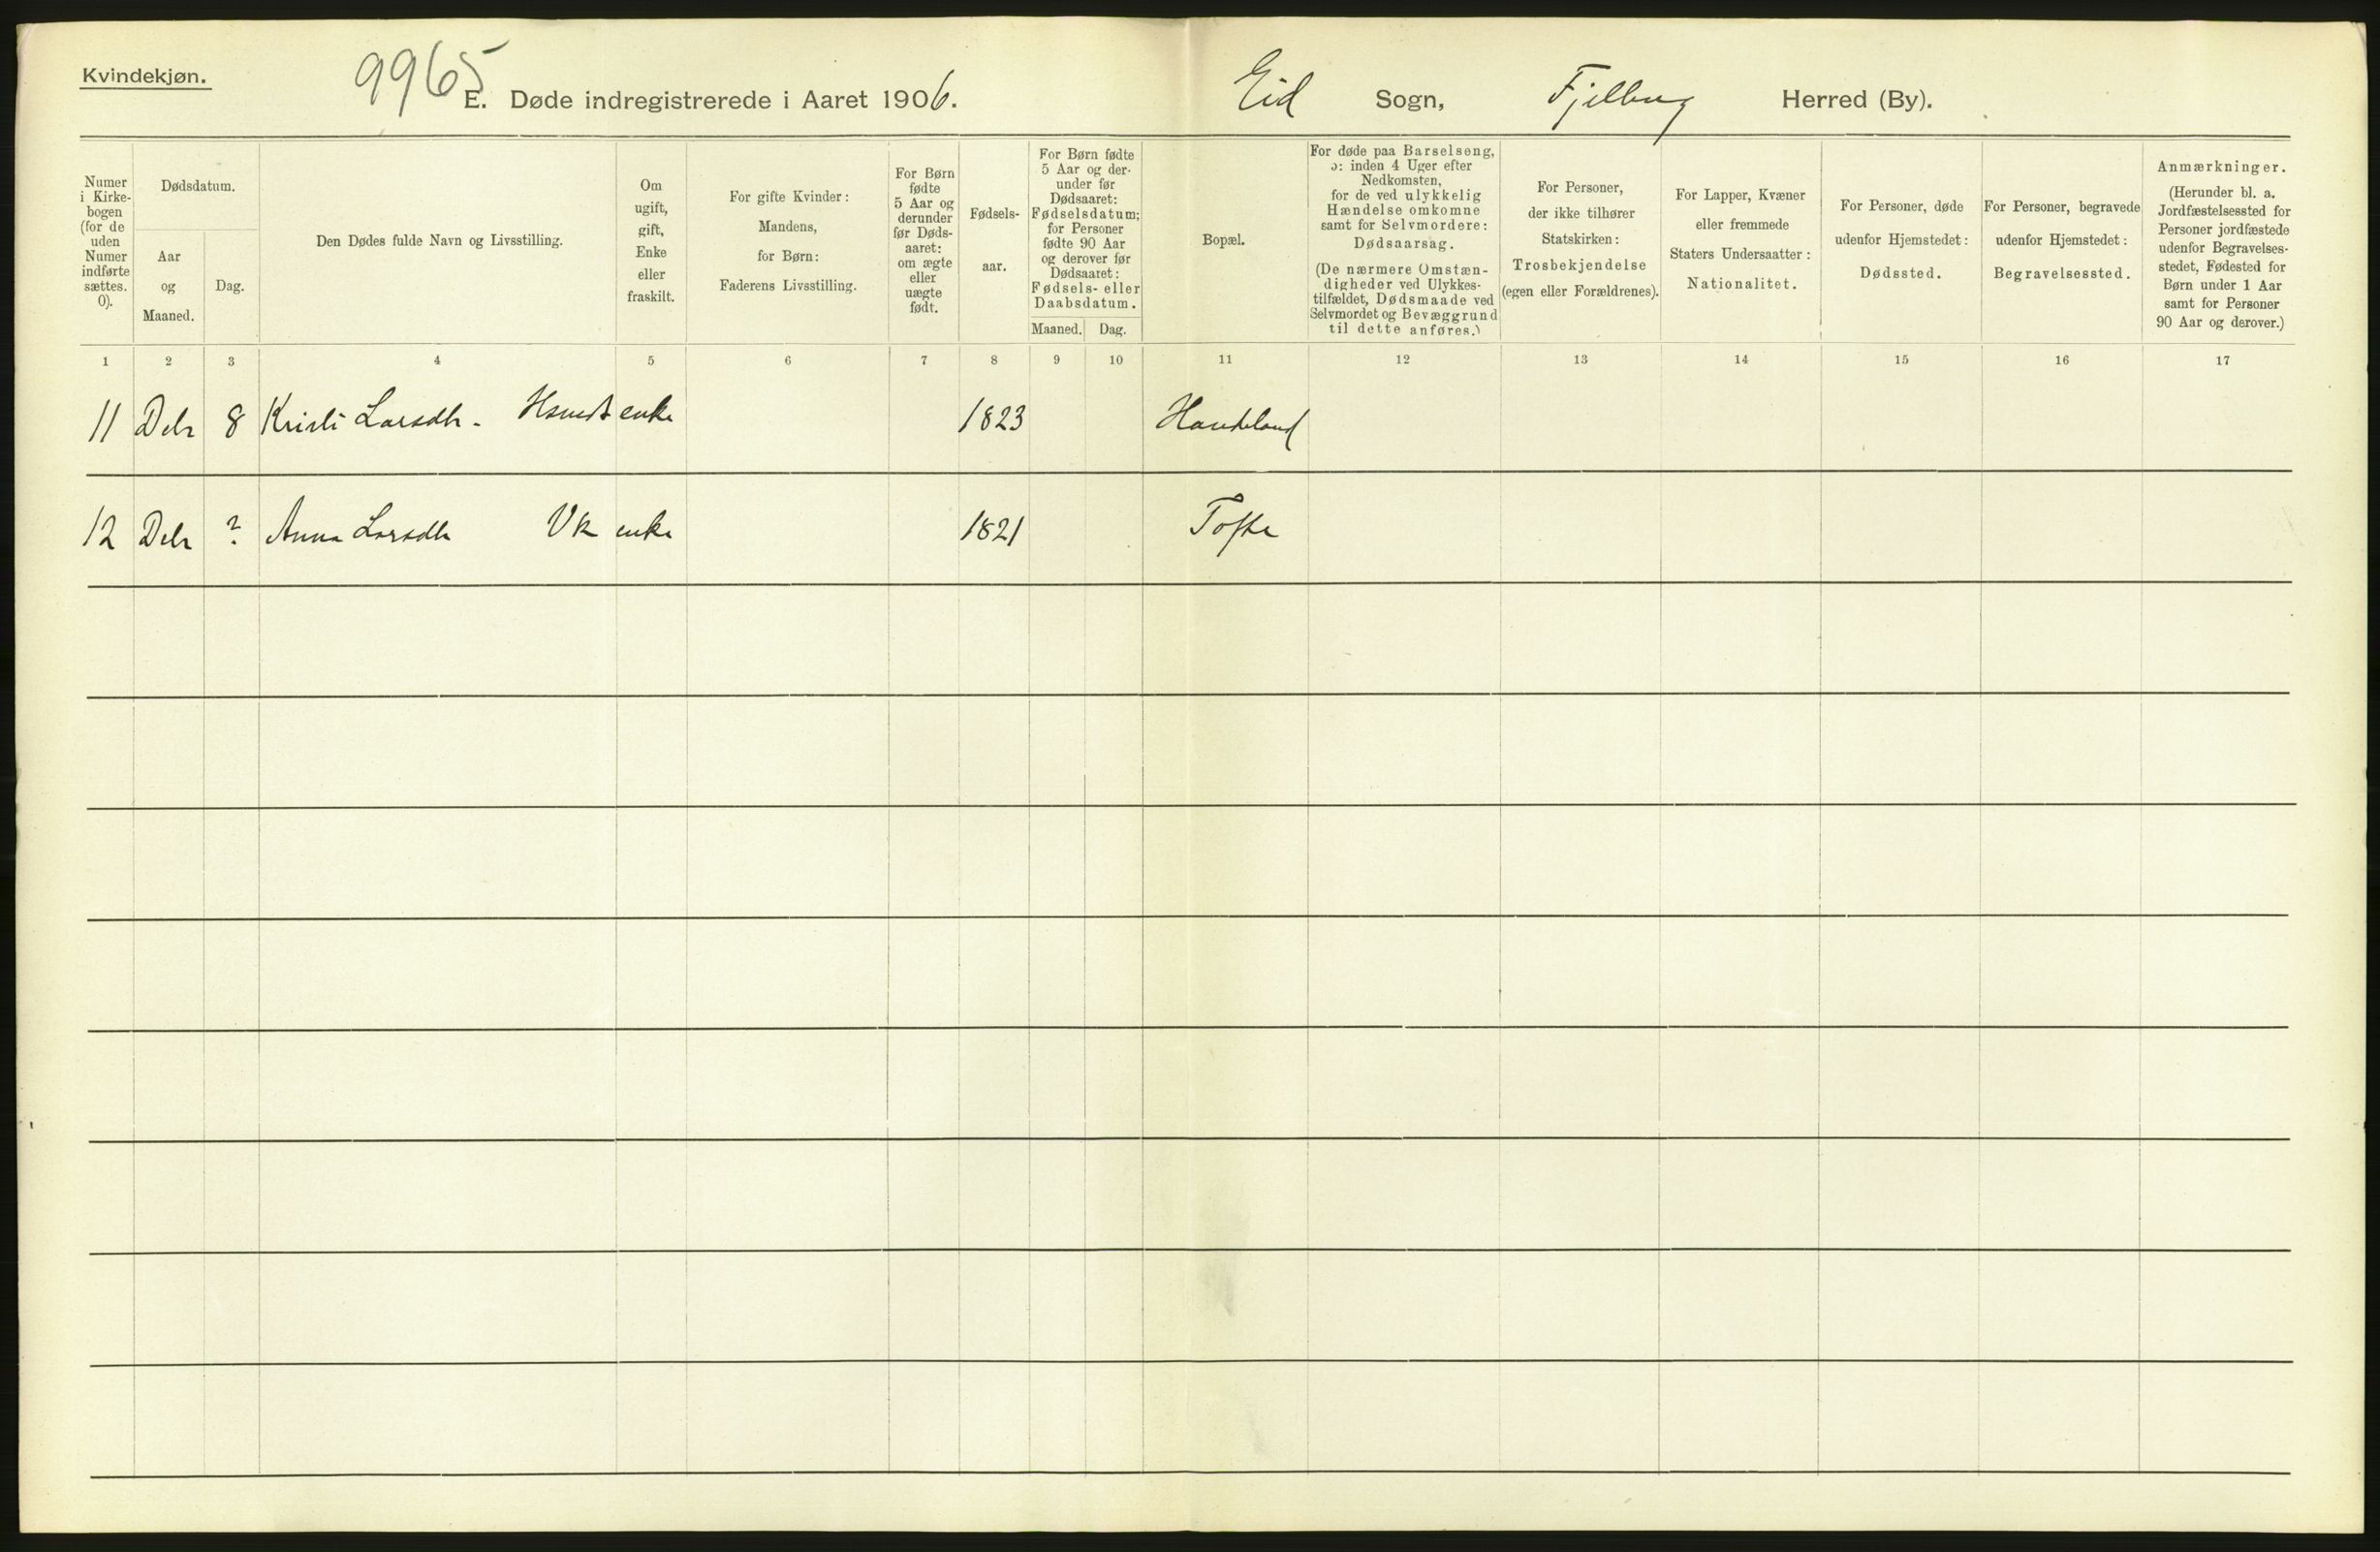 Kvindekjøn.
9965
E. Døde indregistrerede i Aaret 1906.
Eid Sogn, Fjelberg Herred (By).
Numer i Kirke-
bogen
(for de
uden
Numer
indførte
sættes.
0).
Dødsdatum.
Aar
og
Maaned.
Dag.
Den Dødes fulde Navn og Livsstilling.
Om
ugift,
gift,
Enke
eller
fraskilt.
For gifte Kvinder:
Mandens,
for Børn:
Faderens Livsstilling.
For Børn
fødte
5 Aar og
derunder
før Døds-
aaret:
om ægte
eller
uægte
født.
Fødsels-
aar.
For Børn fødte
5 Aar og der-
under før
Dødsaaret:
Fødselsdatum;
for Personer
fødte 90 Aar
og derover før
Dødsaaret:
Fødsels- eller
Daabsdatum.
Maaned. Dag.
Bopæl.
For døde paa Barselseng,
ɔ: inden 4 Uger efter
Nedkomsten,
for de ved ulykkelig
Hændelse omkomne
samt for Selvmordere:
Dødsaarsag.
(De nærmere Omstæn-
digheder ved Ulykkes-
tilfældet, Dødsmaade ved
Selvmordet og Bevæggrund
til dette anføres.)
For Personer,
der ikke tilhører
Statskirken:
Trosbekjendelse
(egen eller Forældrenes).
For Lapper, Kvæner
eller fremmede
Staters Undersaatter:
Nationalitet.
For Personer, døde
udenfor Hjemstedet:
Dødssted.
For Personer, begravede
udenfor Hjemstedet:
Begravelsessted.
Anmærkninger.
(Herunder bl. a.
Jordfæstelsessted for
Personer jordfæstede
udenfor Begravelses-
stedet, Fødested for
Børn under 1 Aar
samt for Personer
90 Aar og derover.)
1 2 3 4 5 6 7 8 9 10 11 12 13 14 15 16 17
11 Debr 8 Kristi Larsdtr. enke 1823 Haukeland
12 Debr ? Anna Larsdtr Vk enke 1821 Tofte